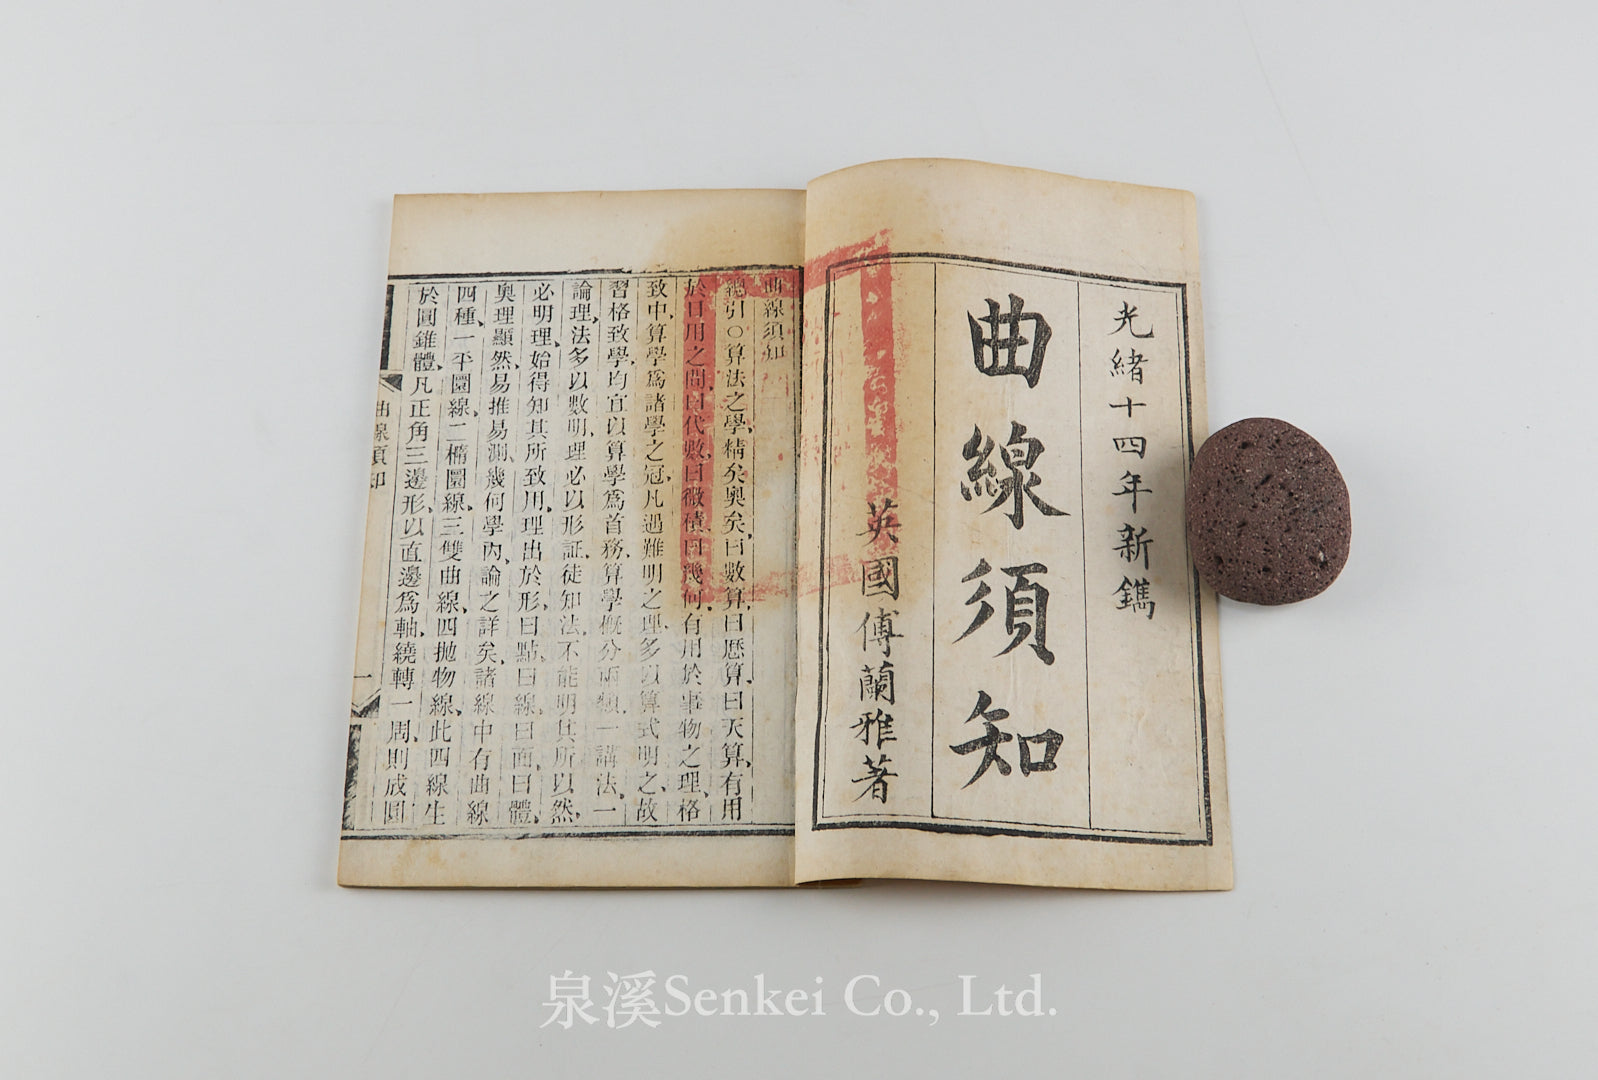 光緒十四年新鐫
曲線須知
英國傅蘭雅著
曲線須知
總引○算法之學、精矣奧矣、曰數算、曰曆算、曰天算、有用
於日用之間、曰代數、曰微積、曰幾何、有用於事物之理、格
致中、算學爲諸學之冠、凡遇難明之理、多以算式明之、故
習格致學、均宜以算學爲首務、算學槪分兩類、一講法、一
論理、法多以數明、理必以形証、徒知法、不能明其所以然、
必明理、始得知其所致用、理出於形、曰點、曰線、曰面、曰體、
奧理顯然、易推易測、幾何學內、論之詳矣、諸線中有曲線
四種、一平圜線、二橢圜線、三雙曲線、四拋物線、此四線生
於圓錐體、凡正角三邊形、以直邊爲軸、繞轉一周、則成圓
曲線須知
一
泉溪Senkei Co., Ltd.